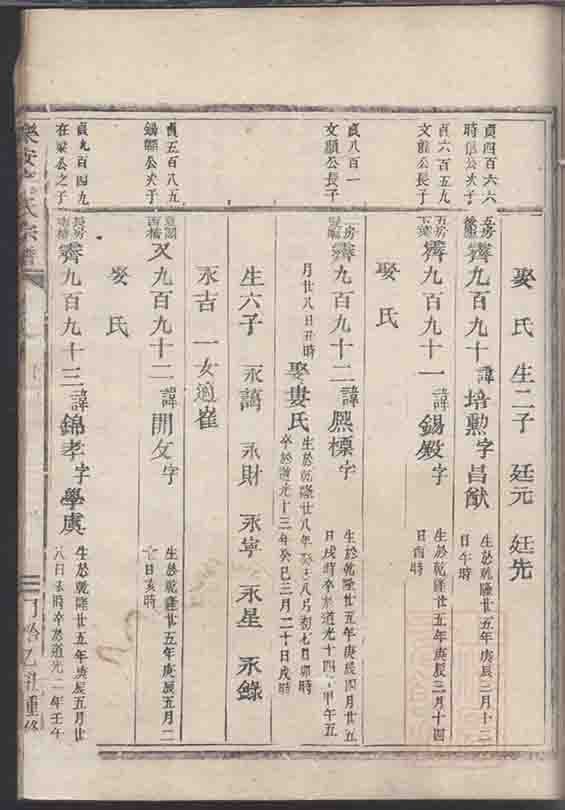 娶氏 生二子 廷元 廷先
貞四百六六
時公次子
齊九百九十諱培勲字昌猷
生於乾隆廿五年庚辰三月十三
日午時
貞六百五九
文顯公長子
齊九百九十一諱錫毅字
生於乾隆廿五年庚辰三月十四
日酉時
娶氏
貞八百一
文顯公長子
齊九百九十二諱熙標字
生於乾隆廿五年庚辰四月廿五
日戌時卒於道光十四甲午五
月廿八日丑時
娶婁氏
生於乾隆廿八年癸八月初七日卯時
卒於道光十三年癸巳三月二十日戌時
生六子 永萬 永財 永寧 永星 永錄
永吉 一女適崔
貞五百八五
錫公次子
又九百九十二諱開文字
生於乾隆廿五年庚辰五月二
日亥時
娶氏
貞九百四九
在梁公之子
齊九百九十三諱錦孝字學虞
生於乾隆廿五年庚辰五月廿
八日時卒於道光年壬午
氏宗譜
乙丑重修